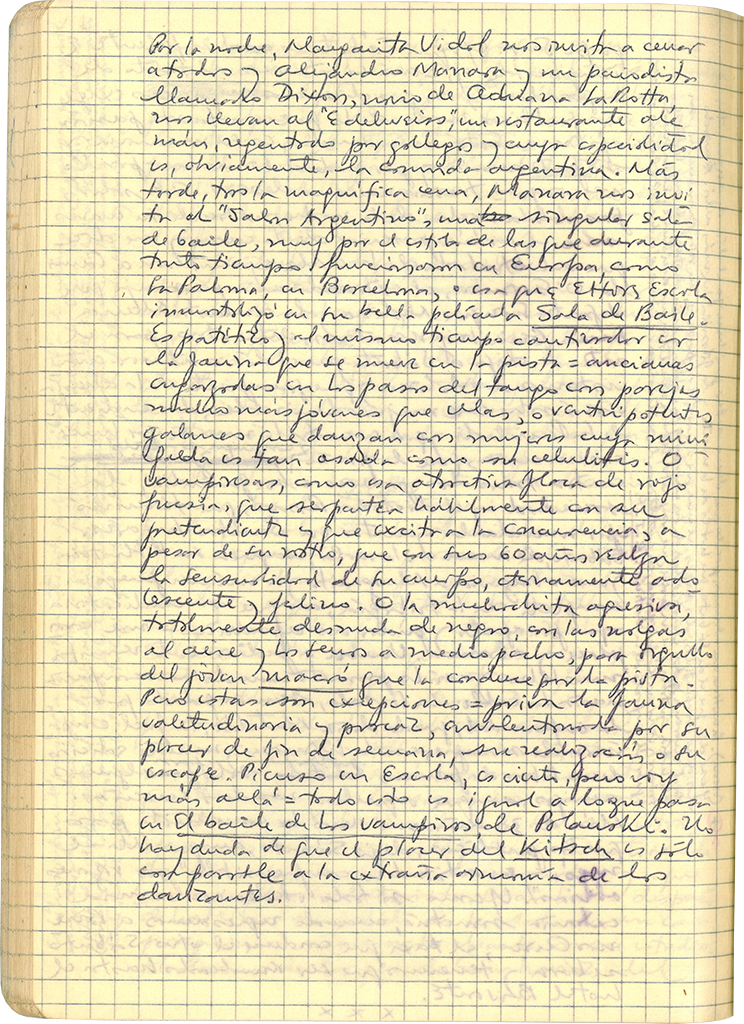 Por la noche, Margarita Vidal nos invita a cenar
a todos y Alejandro Manara y un periodista
llamado Dixon, novio de Adriana La Rotta,
nos llevan al "Edelweiss", un restaurante ale
mán, regentado por gallegos y cuya especialidad
es, obviamente, la comida argentina. Más
tarde, tras la magnífica cena, Manara nos invi
ta al "Salón Argentino", un singular salón
de baile, muy por el estilo de las que durante
tanto tiempo funcionaron en Europa, como
La Paloma, en Barcelona, o esa que Ettore Escola
inmortalizó en su bella película Sala de Baile.
Es patético y al mismo tiempo cautivador ver
la fauna que se mueve en la pista = ancianas
engarzadas en los pasos del tango con parejas
mucho más jóvenes que ellas, o ventripotentes
galanes que danzan con mujeres cuya mini
falda es tan osada como su celulitis. O
vampiresas, como esa atractiva flaca de rojo
fucsia, que serpentea hábilmente con su
pretendiente y que excita a la concurrencia, a
pesar de su rostro, que con sus 60 años realza
la sensualidad de su cuerpo, eternamente ado-
lescente y felino. O la muchachita agresiva,
totalmente desnuda de negro, con las nalgas
al aire y los senos a medio pecho, para orgullo
del joven macró que la conduce por la pista.
Pero estas son excepciones = priva la fauna
valetudinaria y procaz, envalentonada por su
placer de fin de semana, su realización o su
escape. Pienso en Escola, es cierto, pero voy
más allá = todo esto es igual a lo que pasa
en El baile de los vampiros, de Polanski. No
hay duda de que el placer del Kitsch es sólo
comparable a la extraña armonía de los
danzantes.